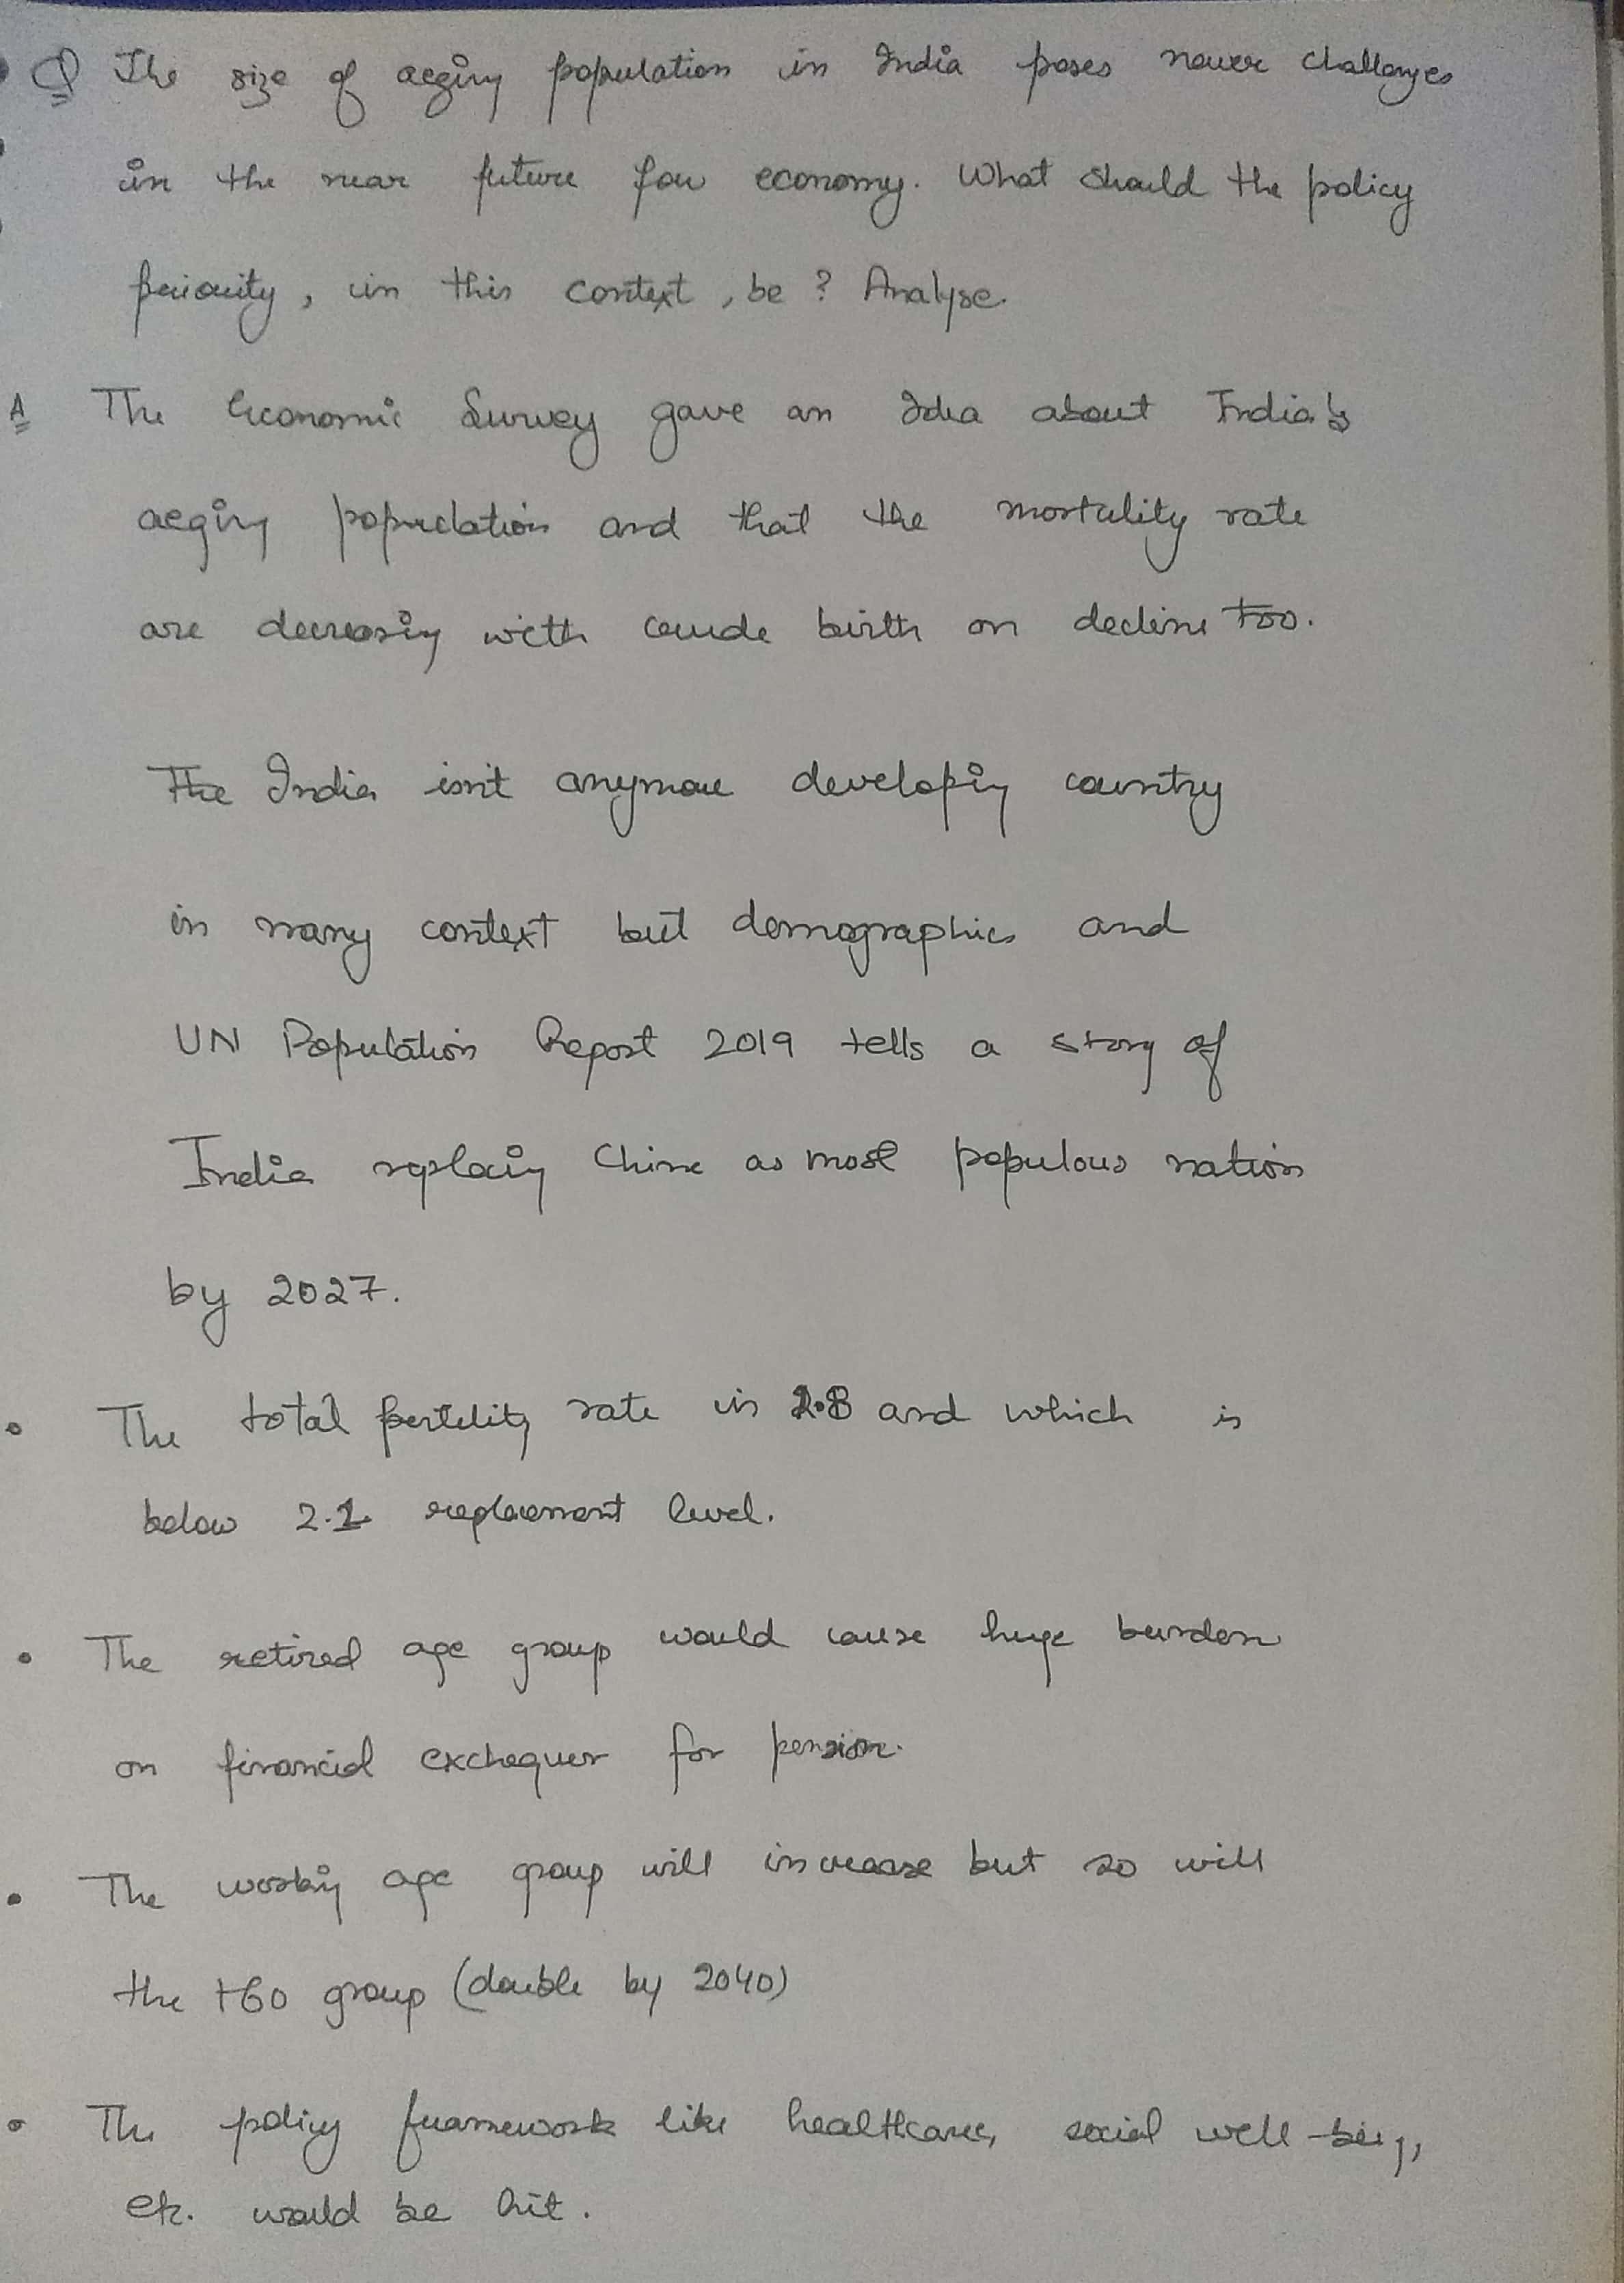 Q The size of aeging population in India poses newer challenges
in the near future for economy. What should the policy
priority, in this context, be? Analyse.
A The Economic Survey gave an Idea about India's
aeging population and that the mortality rate
are decreasing with crude birth on decline too.
The India isn't anymore developing country
in many context but demographics and
UN Population Report 2019 tells a story of
India replacing China as most populous nation
by 2027.
• The total fertility rate is and which is
below 2.1 replacement level.
• The retired age group would cause huge burden
on financial exchequer for pension.
• The working age group will increase but so will
the +60 group (double by 2040)
• The policy framework like healthcare, social well-being,
etc. would be hit.